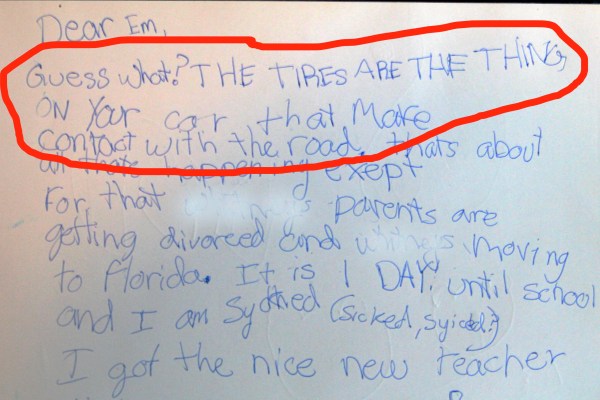 Dear Em,
Guess what? THE TIRES ARE THE THING
ON YOUR car that Make
contact with the road. thats about
all thats happening exept
For that parents are
getting divorced and moving
to Florida. It is 1 DAY! until school
and I am sycthed (sicked, syiced?)
I got the nice new teacher